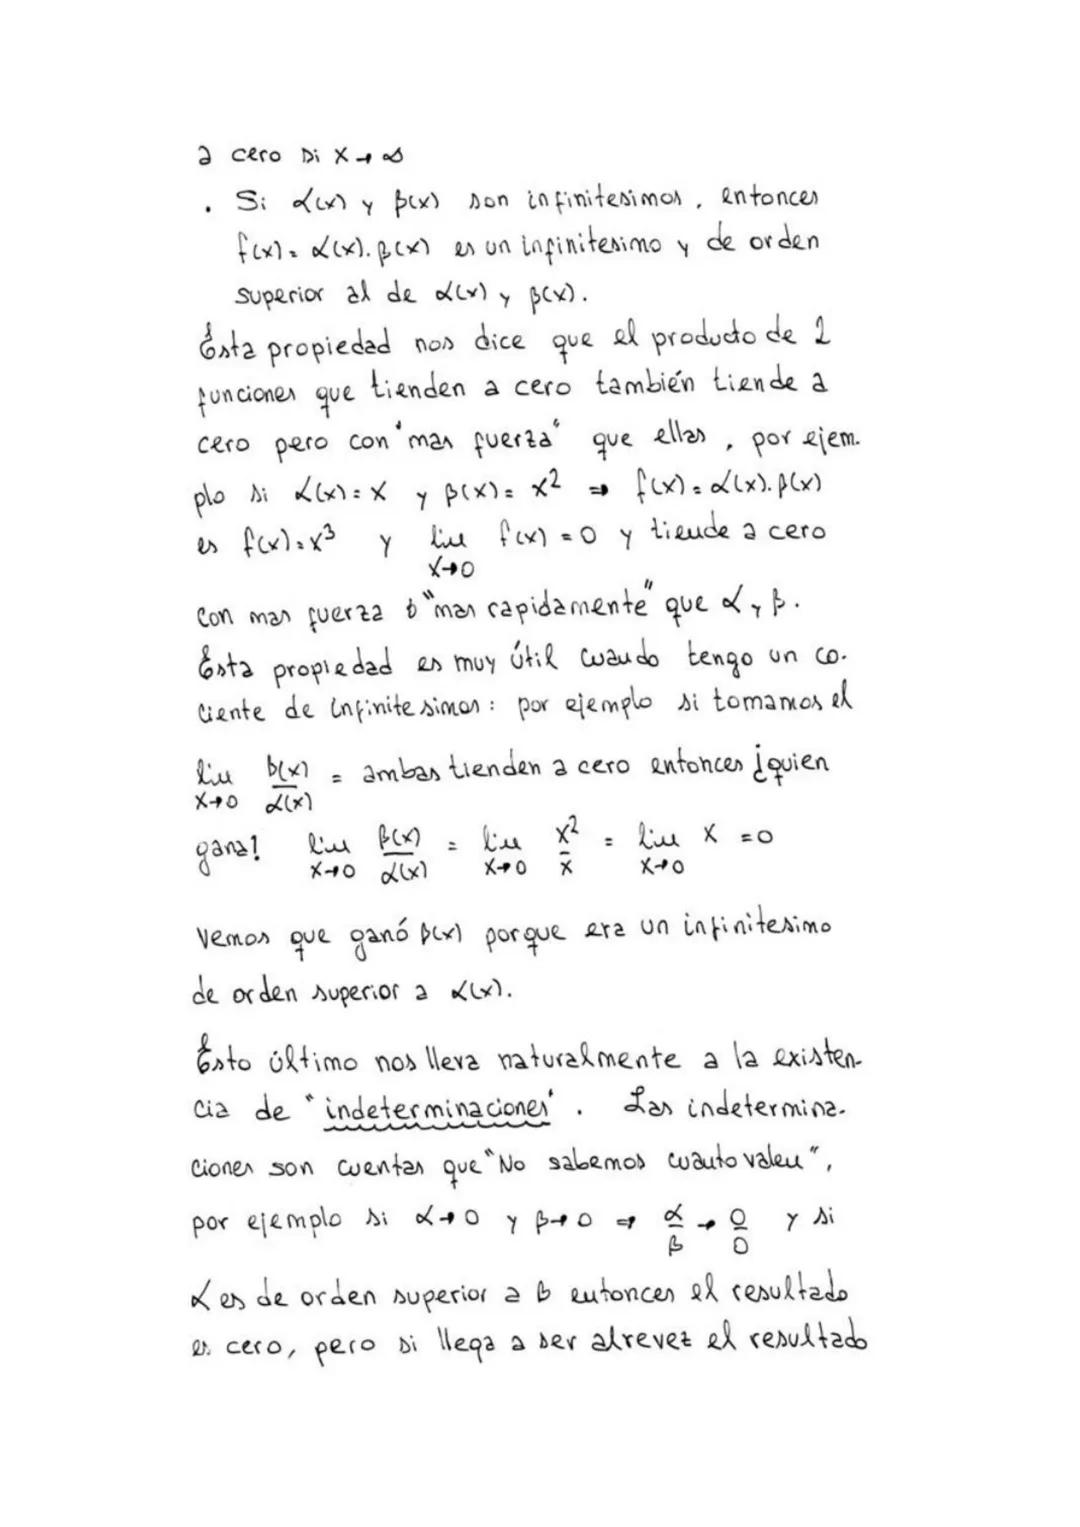 a cero si x→∞
. Si α(x) y β(x) son infinitesimos, entonces
f(x)=α(x).β(x) es un infinitesimo y de orden
superior al de α(x) y β(x).
Esta propiedad nos dice que el producto de 2
funciones que tienden a cero también tiende a
cero pero con "mas fuerza" que ellas, por ejem-
plo si α(x)=x y β(x)=x² ⇒ f(x)=α(x).β(x)
es f(x)=x³ y lim x→0 f(x)=0 y tiende a cero
con mas fuerza ó "mas rapidamente" que α y β.
Esta propiedad es muy útil cuando tengo un co-
ciente de infinitesimos: por ejemplo si tomamos el
lim x→0 β(x)/α(x) = ambas tienden a cero entonces ¿quien
gana? lim x→0 β(x)/α(x) = lim x→0 x²/x = lim x→0 x =0
Vemos que ganó β(x) porque era un infinitesimo
de orden superior a α(x).
Esto último nos lleva naturalmente a la existen-
cia de "indeterminaciones". Las indetermina-
ciones son cuentas que "No sabemos cuanto valen",
por ejemplo si α→0 y β→0 ⇒ α/β → 0/0 y si
α es de orden superior a β entonces el resultado
es cero, pero si llega a ser alrevez el resultado